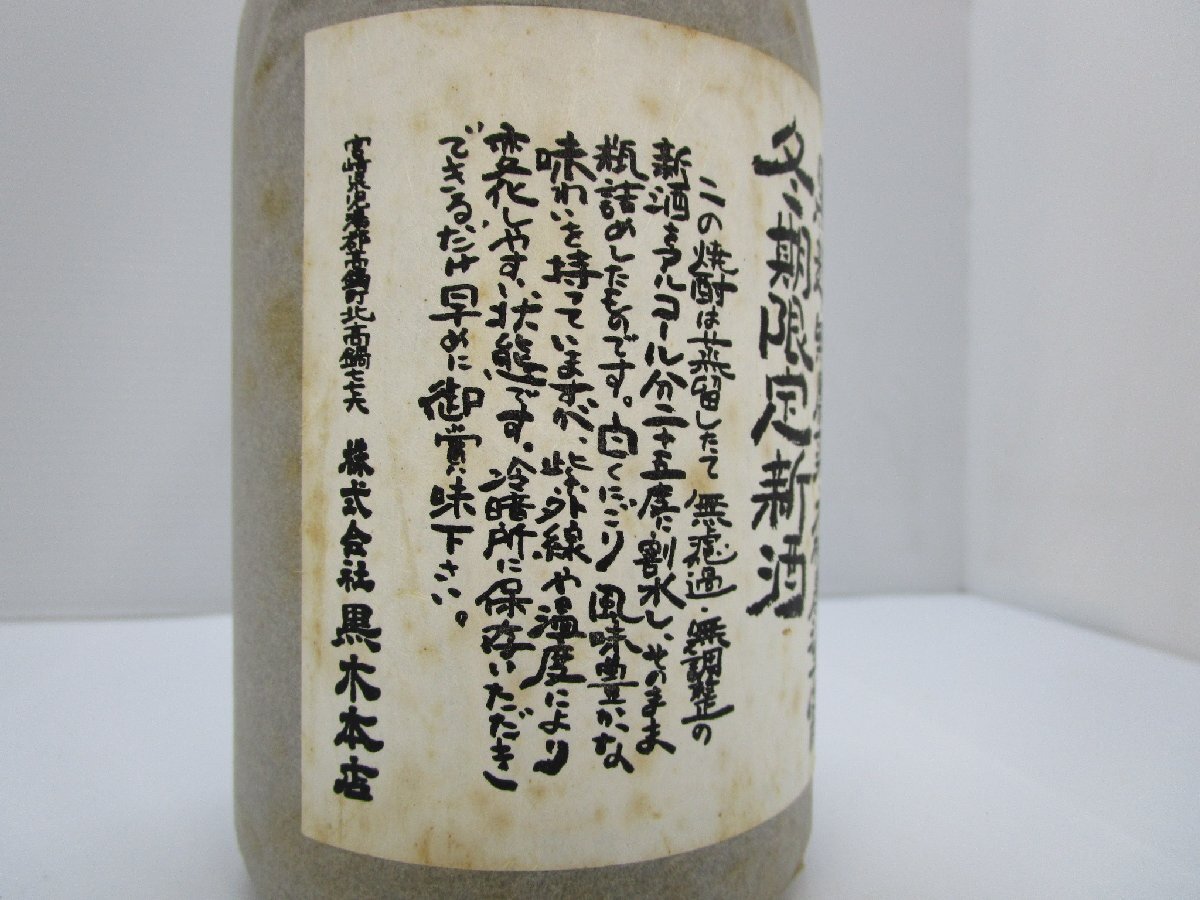 冬期限定新酒
この焼酎は蒸留したて無濾過・無調整の
新酒をアルコール分二十五度に割水し、そのまま
瓶詰めしたものです。白くにごり風味豊かな
味わいを持っていますが、紫外線や温度により
変化しやすい状態です。冷暗所に保存いただき
できるだけ早めに御賞味下さい。
宮崎県児湯郡高鍋町北高鍋七七六 株式会社黒木本店